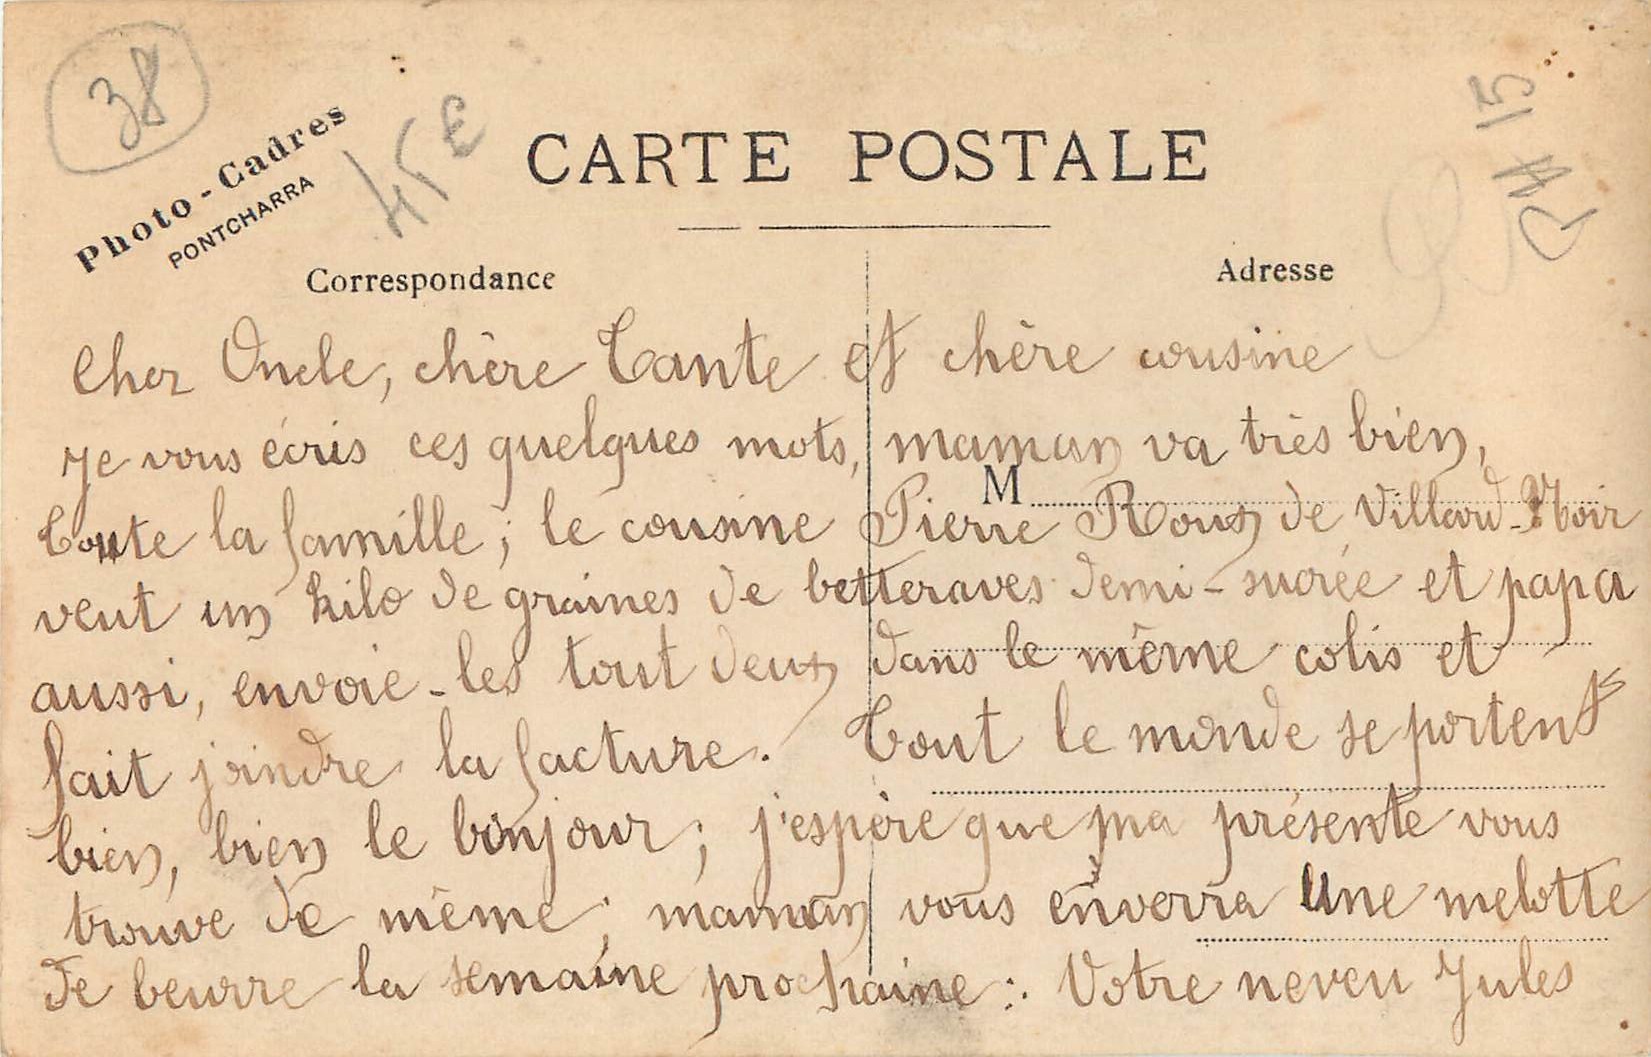 38
Photo-Cadres
PONTCHARRA
45 €
CARTE POSTALE
15
Correspondance
Adresse
Cher Oncle, chère Tante et chère cousine
Je vous écris ces quelques mots, maman va très bien,
M
toute la famille ; le cousine Pierre Roux de Villard-Noir
veut un kilo de graines de betteraves demi-sucrée et papa
aussi, envoie-les tout deux dans le même colis et
fait joindre la facture. Tout le monde se portent
bien, bien le bonjour ; j'espère que ma présente vous
trouve de même ; maman vous enverra une melotte
de beurre la semaine prochaine :. Votre neveu Jules